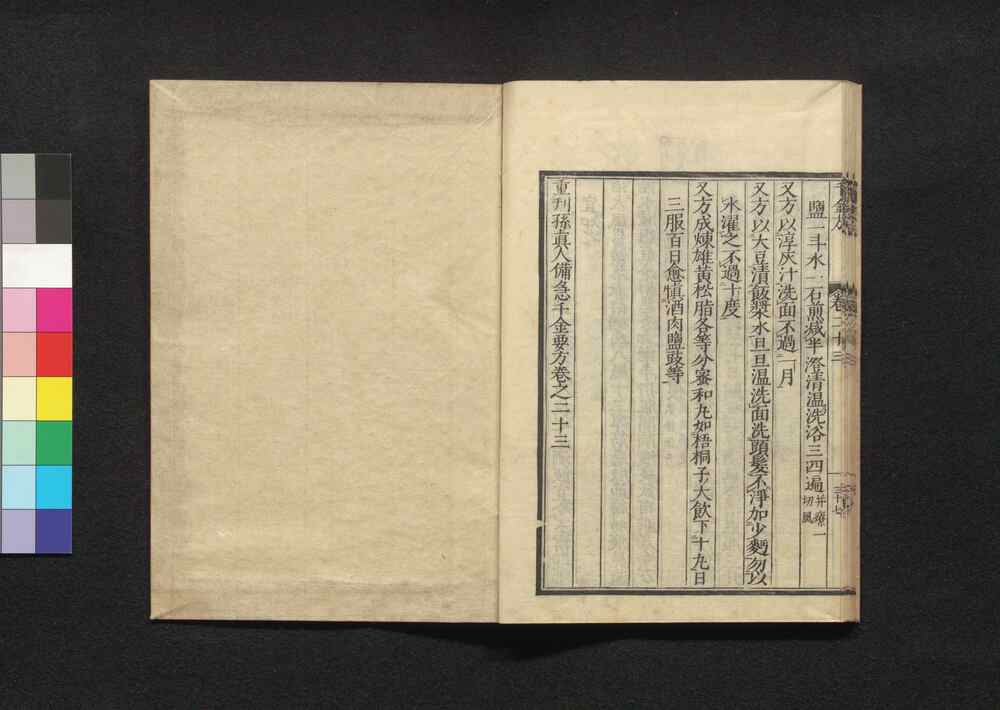 鹽一斗水一石煎減半澄清温洗浴三四遍并療一切風
又方以淳灰汁洗面不過一月
又方以大豆漬飯漿水旦旦温洗面洗頭髮不淨加少麪勿以
水濯之不過十度
又方成煉雄黄松脂各等分蜜和丸如梧桐子大飲下十丸日
三服百日愈愼酒肉鹽豉等
重刊孫真人備急千金要方卷之二十三